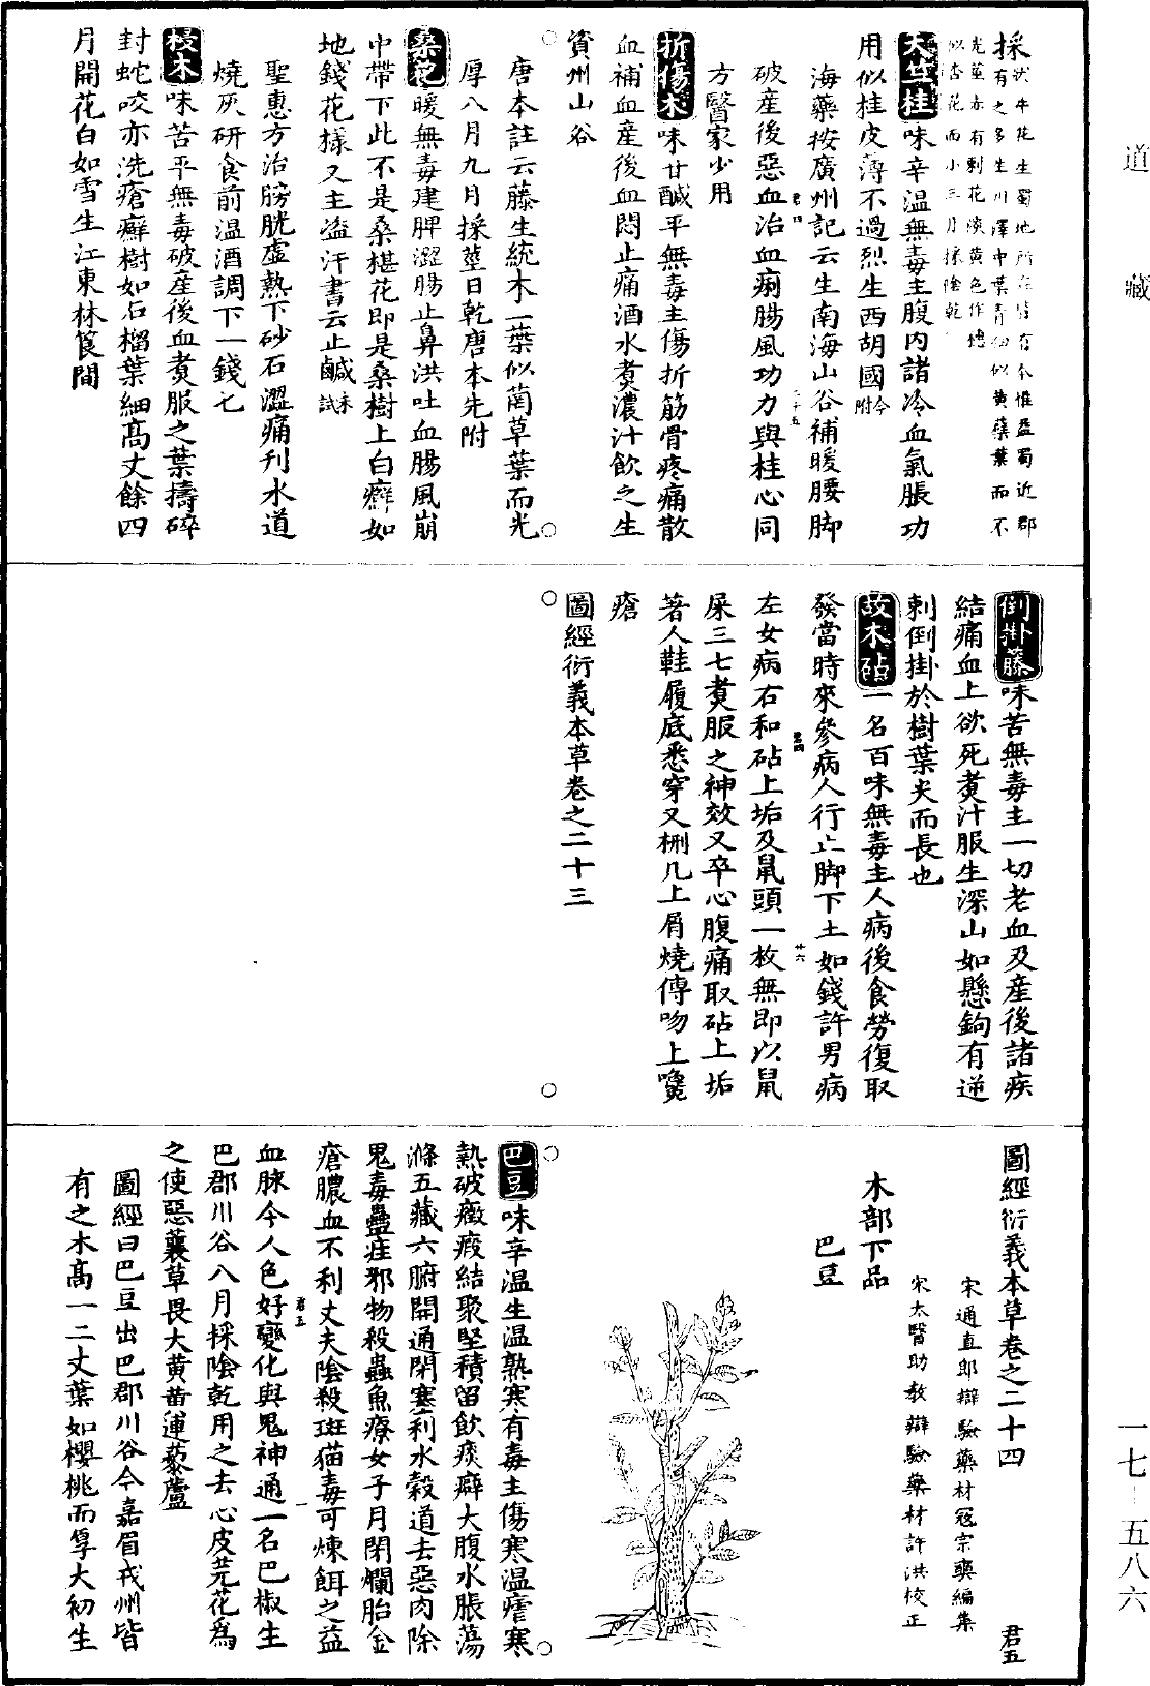 道藏
採
狀牛花生蜀地所在皆有今惟益蜀近郡
有之多生川澤中葉青細似黄蘗葉而不
光莖赤有刺花淡黄色作穗
似杏花而小三月採陰乾
天竺桂味辛温無毒主腹内諸冷血氣脹功
用似桂皮薄不過烈生西胡國今附
海藥按廣州記云生南海山谷補暖腰脚
破産後惡血治血痢腸風功力與桂心同
方醫家少用
折傷木味甘鹹平無毒主傷折筋骨疼痛散
血補血産後血悶止痛酒水煮濃汁飲之生
資州山谷
唐本註云藤生繞木一葉似䓣草葉而光
厚八月九月採莖日乾唐本先附
桑花暖無毒建脾澀腸止鼻洪吐血腸風崩
中帶下此不是桑椹花即是桑樹上白癬如
地錢花樣又主盗汗書云止鹹未試
聖惠方治膀胱虛熱下砂石澀痛利水道
燒灰研食前温酒調下一錢匕
椶木味苦平無毒破産後血煮服之葉擣碎
封蛇咬亦洗瘡癬樹如石榴葉細高丈餘四
月開花白如雪生江東林筤間
倒掛籐味苦無毒主一切老血及産後諸疾
結痛血上欲死煮汁服生深山如懸鉤有逆
刺倒掛於樹葉尖而長也
故木砧一名百味無毒主人病後食勞復取
發當時來參病人行止脚下土如錢許男病
左女病右和砧上垢及鼠頭一枚無即以鼠
屎三七煮服之神效又卒心腹痛取砧上垢
著人鞋履底悉穿又栦几上屑燒傅吻上㗜
瘡
圖經衍義本草卷之二十三
圖經衍義本草卷之二十四 君五
宋通直郎辯驗藥材寇宗奭編集
宋太醫助教辯驗藥材許洪校正
木部下品
巴豆
巴豆味辛温生温熟寒有毒主傷寒温瘧寒
熱破癥瘕結聚堅積留飲痰癖大腹水脹蕩
滌五藏六腑開通閉塞利水穀道去惡肉除
鬼毒蠱疰邪物殺蟲魚療女子月閉爛胎金
瘡膿血不利丈夫陰殺斑猫毒可煉餌之益
血脉令人色好變化與鬼神通一名巴椒生
巴郡川谷八月採陰乾用之去心皮芫花爲
之使惡蘘草畏大黄黄連藜蘆
圖經曰巴豆出巴郡川谷今嘉眉戎州皆
有之木高一二丈葉如櫻桃而厚大初生
一七—五八六